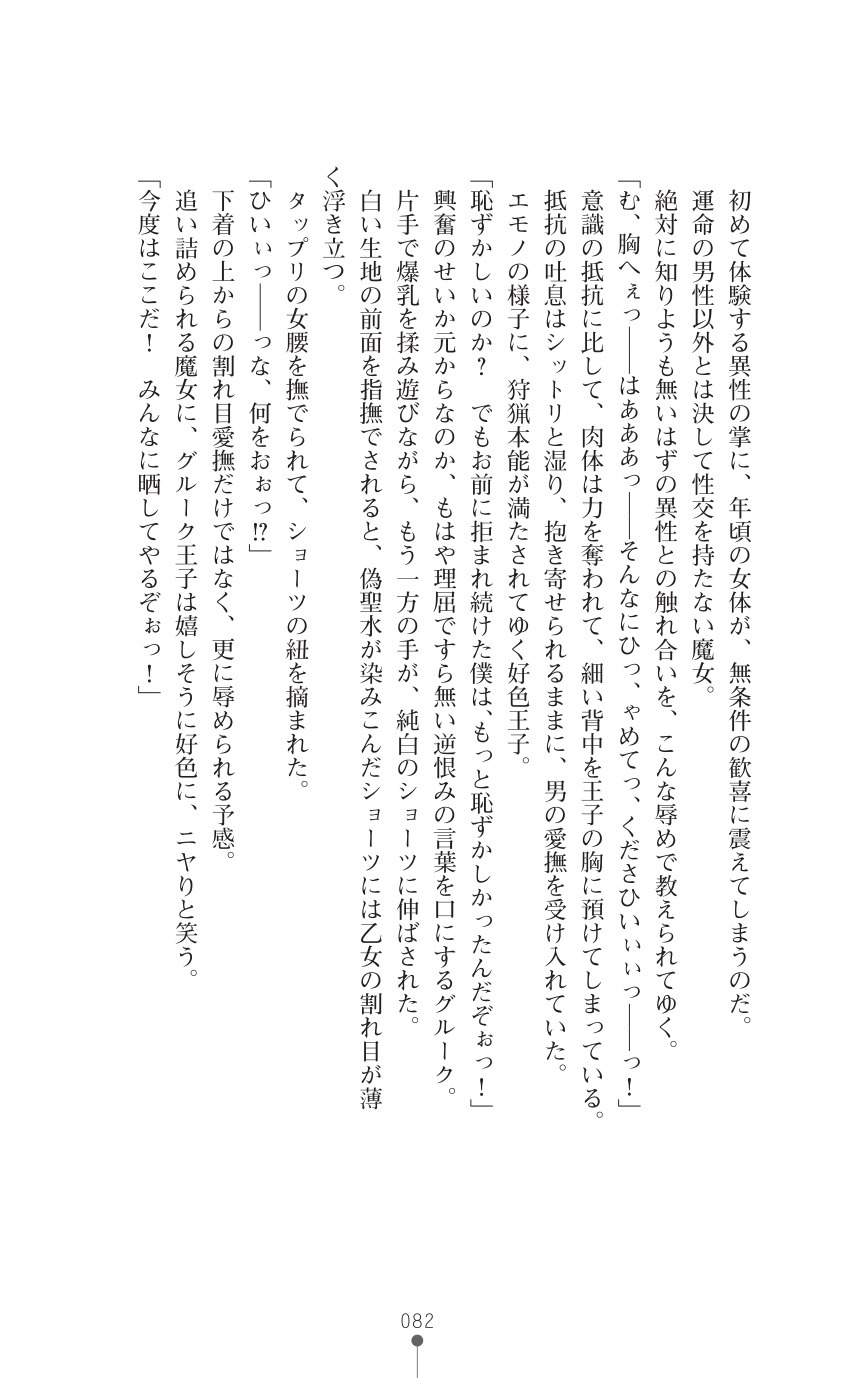 初めて体験する異性の掌に、年頃の女体が、無条件の歓喜に震えてしまうのだ。
運命の男性以外とは決して性交を持たない魔女。
絶対に知りようも無いはずの異性との触れ合いを、こんな辱めで教えられてゆく。
「む、胸へぇっ――はあああっ――そんなにひっ、ゃめてっ、くださひいぃぃっ――っ！」
意識の抵抗に比して、肉体は力を奪われて、細い背中を王子の胸に預けてしまっている。
抵抗の吐息はシットリと湿り、抱き寄せられるままに、男の愛撫を受け入れていた。
エモノの様子に、狩猟本能が満たされてゆく好色王子。
「恥ずかしいのか？　でもお前に拒まれ続けた僕は、もっと恥ずかしかったんだぞぉっ！」
興奮のせいか元からなのか、もはや理屈ですら無い逆恨みの言葉を口にするグルーク。
片手で爆乳を揉み遊びながら、もう一方の手が、純白のショーツに伸ばされた。
白い生地の前面を指撫でされると、偽聖水が染みこんだショーツには乙女の割れ目が薄
く浮き立つ。
タップリの女腰を撫でられて、ショーツの紐を摘まれた。
「ひいぃっ――っな、何をおぉっ!?」
下着の上からの割れ目愛撫だけではなく、更に辱められる予感。
追い詰められる魔女に、グルーク王子は嬉しそうに好色に、ニヤりと笑う。
「今度はここだ！　みんなに晒してやるぞぉっ！」
082